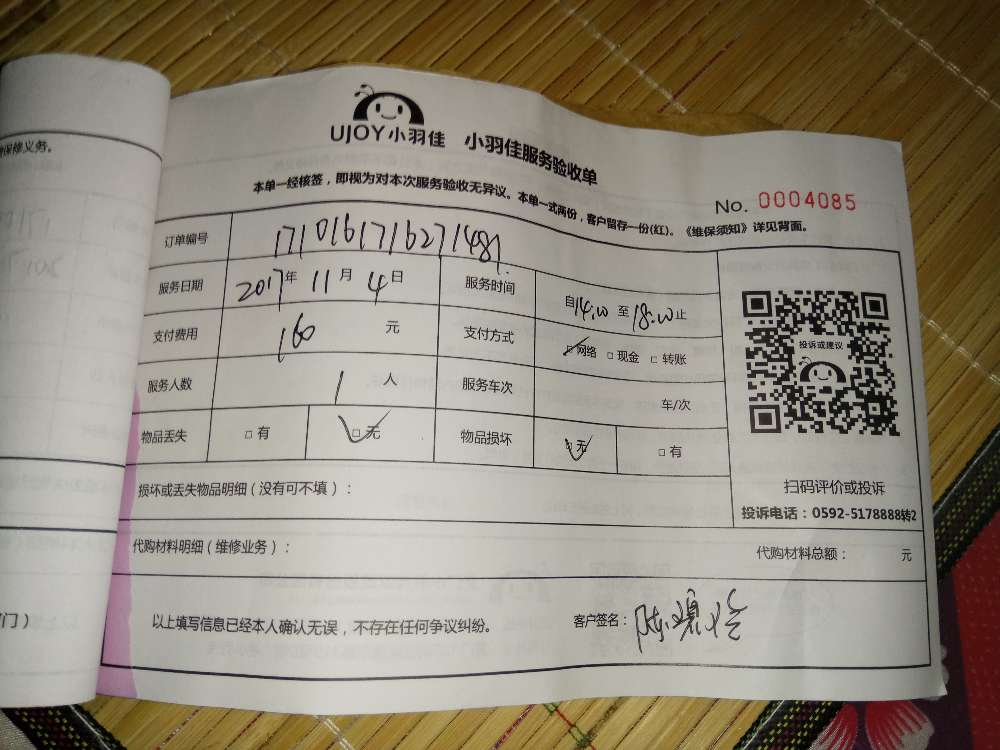 修义务。
UJOY小羽佳 小羽佳服务验收单
本单一经核签，即视为对本次服务验收无异议。本单一式两份，客户留存一份(红)。《维保须知》详见背面。
No. 0004085
订单编号 171016171627148
服务日期 2017年 11月 4日 服务时间 自14:00至18:00止
支付费用 160 元 支付方式 □网络 □现金 □转账
服务人数 1 人 服务车次 车/次
物品丢失 □有 □无 物品损坏 □无 □有
投诉或建议
扫码评价或投诉
投诉电话：0592-5178888转2
损坏或丢失物品明细（没有可不填）：
代购材料明细（维修业务）： 代购材料总额： 元
门）
以上填写信息已经本人确认无误，不存在任何争议纠纷。 客户签名：陈